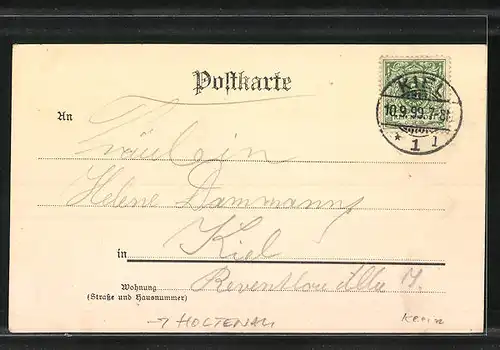 Postkarte
KIEL
10.9.99.7-8
* 1 1
An
Fräulein
Helene Dammann
in Kiel
Wohnung
(Straße und Hausnummer)
Reventlou Allee
→ HOLTENAU